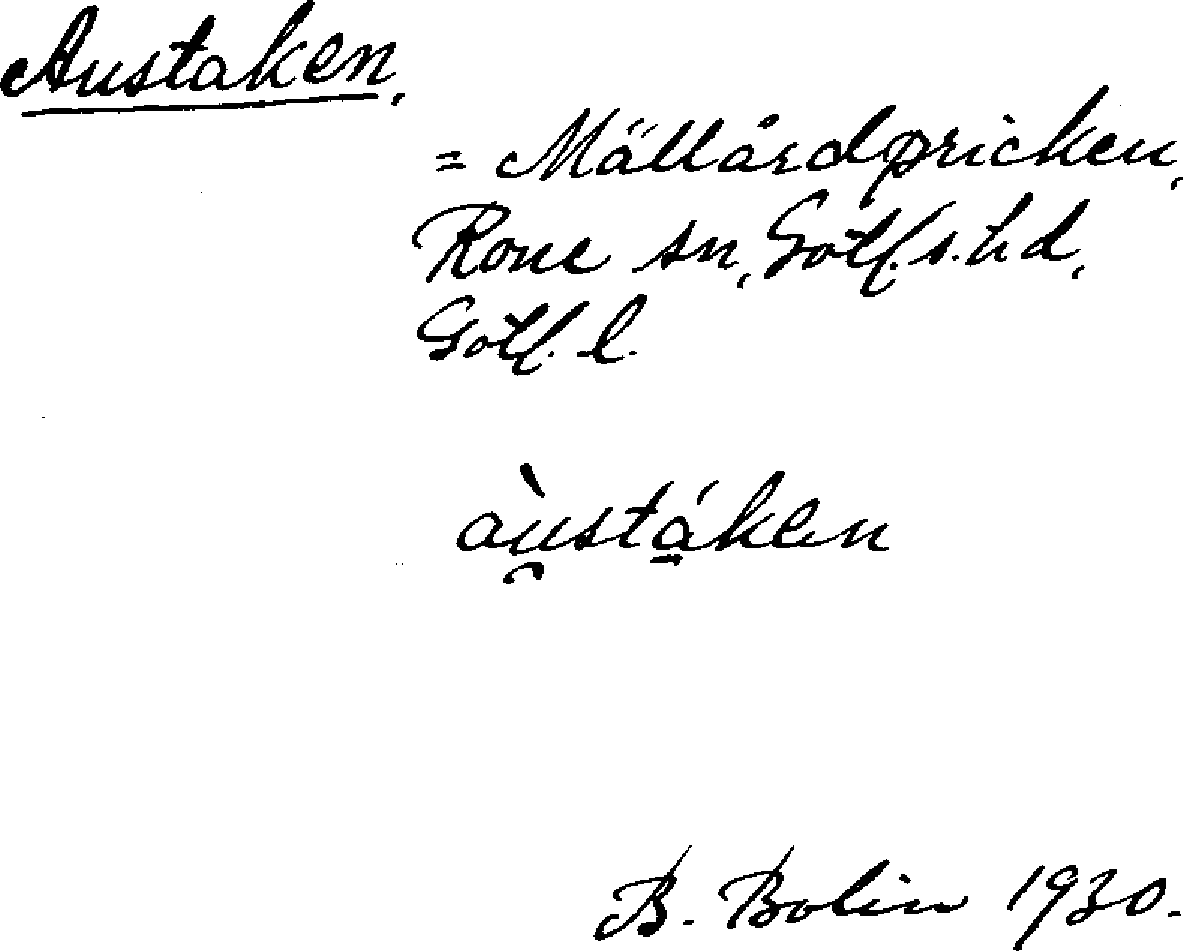 Austaken,
= Mällårdpricken,
Rone sn, Gotl. s. hd,
Gotl. l.
aù̯stá̠ken
B. Bolin 1930.